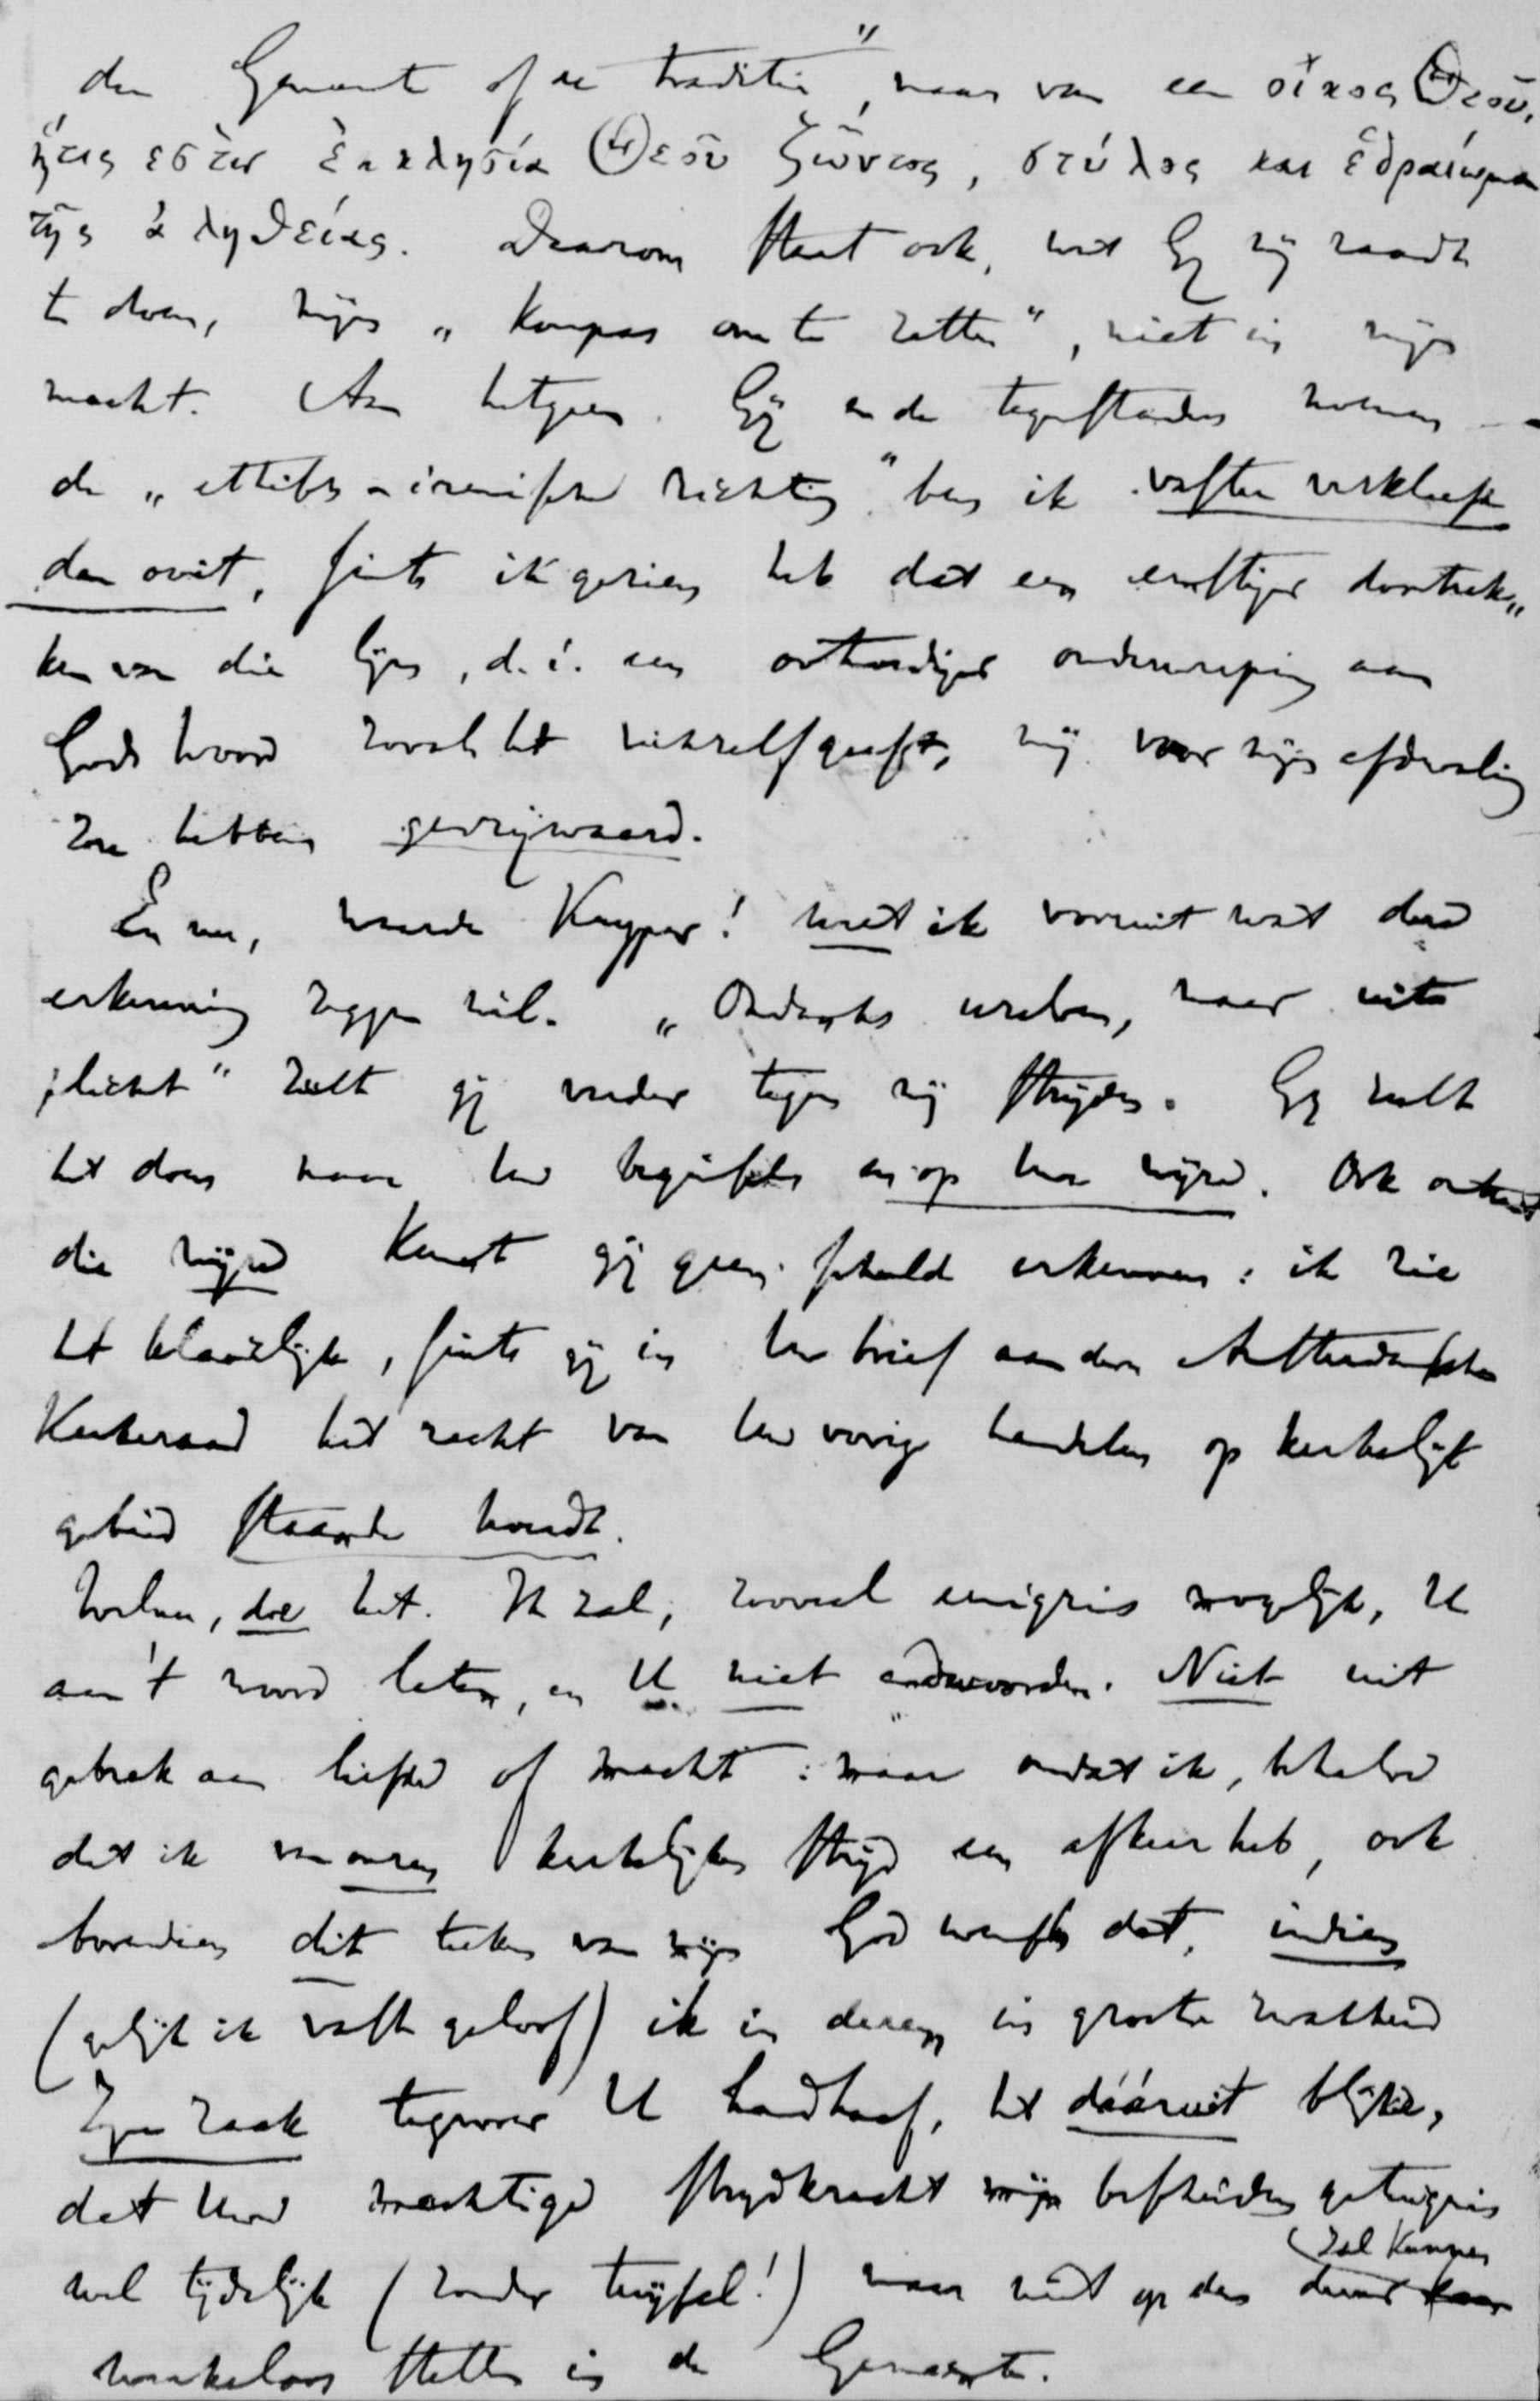 de Gemeente of de traditie", maar van een οἶκος Θεοῦ,
ἥτις ἐστὶν ἐκκλησία Θεοῦ ζῶντος, στύλος και ἑδραίωμα
τῆς ἀληθείας. Daarom staat ook, wat Gij mij raadt
te doen, mijn „kompas om te zetten", niet in mijn
macht. Aan hetgeen Gij en de tegenstanders noemen
de „ethisch-irenische richting" ben ik vaster verkleefd
dan ooit, sints ik gezien heb dat een ernstiger doortrek„
ken van die lijn, d. i. een ootmoediger onderwerping aan
Gods woord zooals het zichzelf geeft, mij voor mijn afdwaling
zou hebben gevrijwaard.
En nu, waarde Kuyper! weet ik vooruit wat deze
erkenning zeggen wil. „Ondanks uzelven, maar uit
plicht" zult gij verder tegen mij strijden. Gij zult
het doen naar uw beginsels en op uw wijze. Ook omtrent
die wijze kunt gij geen schuld erkennen: ik zie
het klaarlijk, sints gij in uw brief aan den Amsterdamschen
Kerkeraad het recht van uw vorige handelen op kerkelijk
gebied staande houdt.
Welnu, doe het. Ik zal, zooveel eenigzins mogelijk, U
aan 't woord laten, en U niet andwoorden. Niet uit
gebrek aan liefde of macht: maar omdat ik, behalve
dat ik van onzen kerkelijken strijd een afkeer heb, ook
bovendien dit teeken van mijn God wensch dat, indien
(gelijk ik vast geloof) ik in dezen in groote zwakheid
Zijn zaak tegenover U handhaaf, het dááruit blijke,
dat Uwe machtige strijdkracht mijn bescheiden getuigenis
zal kunnen
wel tijdelijk (zonder twijfel!) maar niet op den duur
krachteloos stellen in de Gemeente.